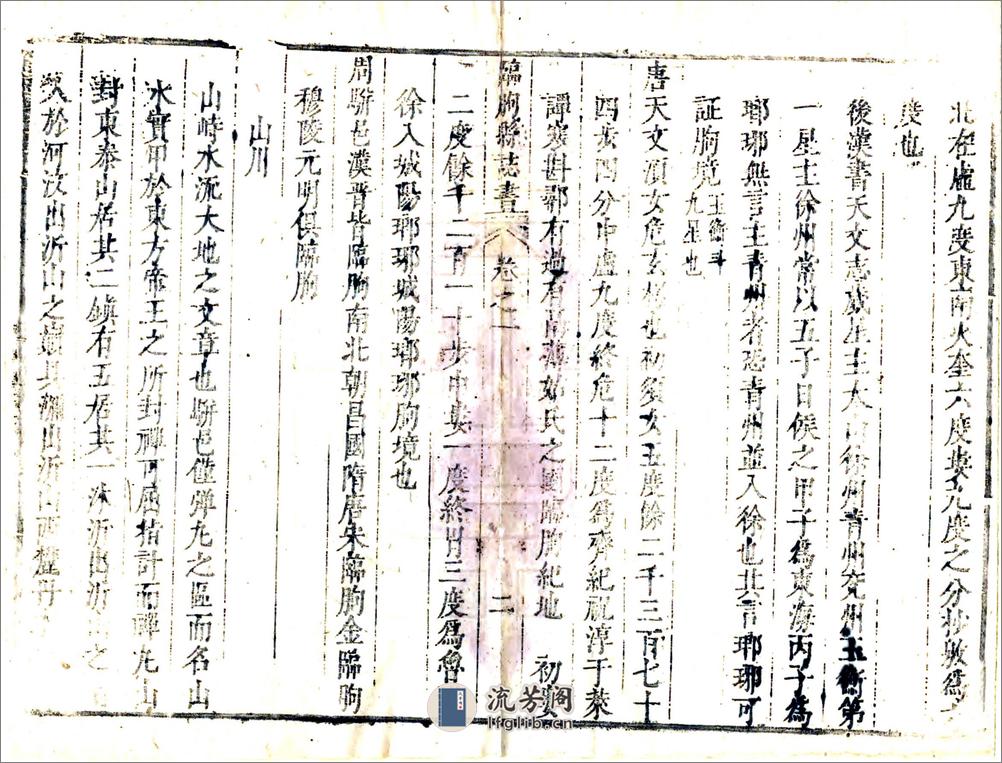 北在虛九度東南火奎六度婁九度之分抄數爲
度也
後漢書天文志歲星主大山徐州青州兖州玉衡第
一星主徐州常以五子日候之甲子爲東海丙子爲
瑯琊無言主青州者恐青州並入徐也其言瑯琊可
証朐境玉衡斗九星也
唐天文須女危玄枵也初須女五度餘二千三百七十
四安四分中虛九度終危十二度爲齊紀祝淳于萊
譚寒斟鄩有過有鬲薄姑氏之國臨朐紀地 初婁
臨朐縣誌書 卷之一 二
二度餘千二百一十步中婁一度終廿三度爲魯
徐入城陽瑯琊城陽瑯琊朐境也
周駢邑漢晋皆臨朐南北朝昌國隋唐宋臨朐金臨朐
穆陵元明俱臨朐
山川
山峙水流大地之文章也駢邑僅弹丸之區而名山
水實甲於東方帝王之所封禪可屈指計而禪凡山
對東泰山居其二鎮有五居其一沭沂出沂之
於河汶出沂山之巔其瀰出沂山西麓丹
流芳阁
lfglib.cn